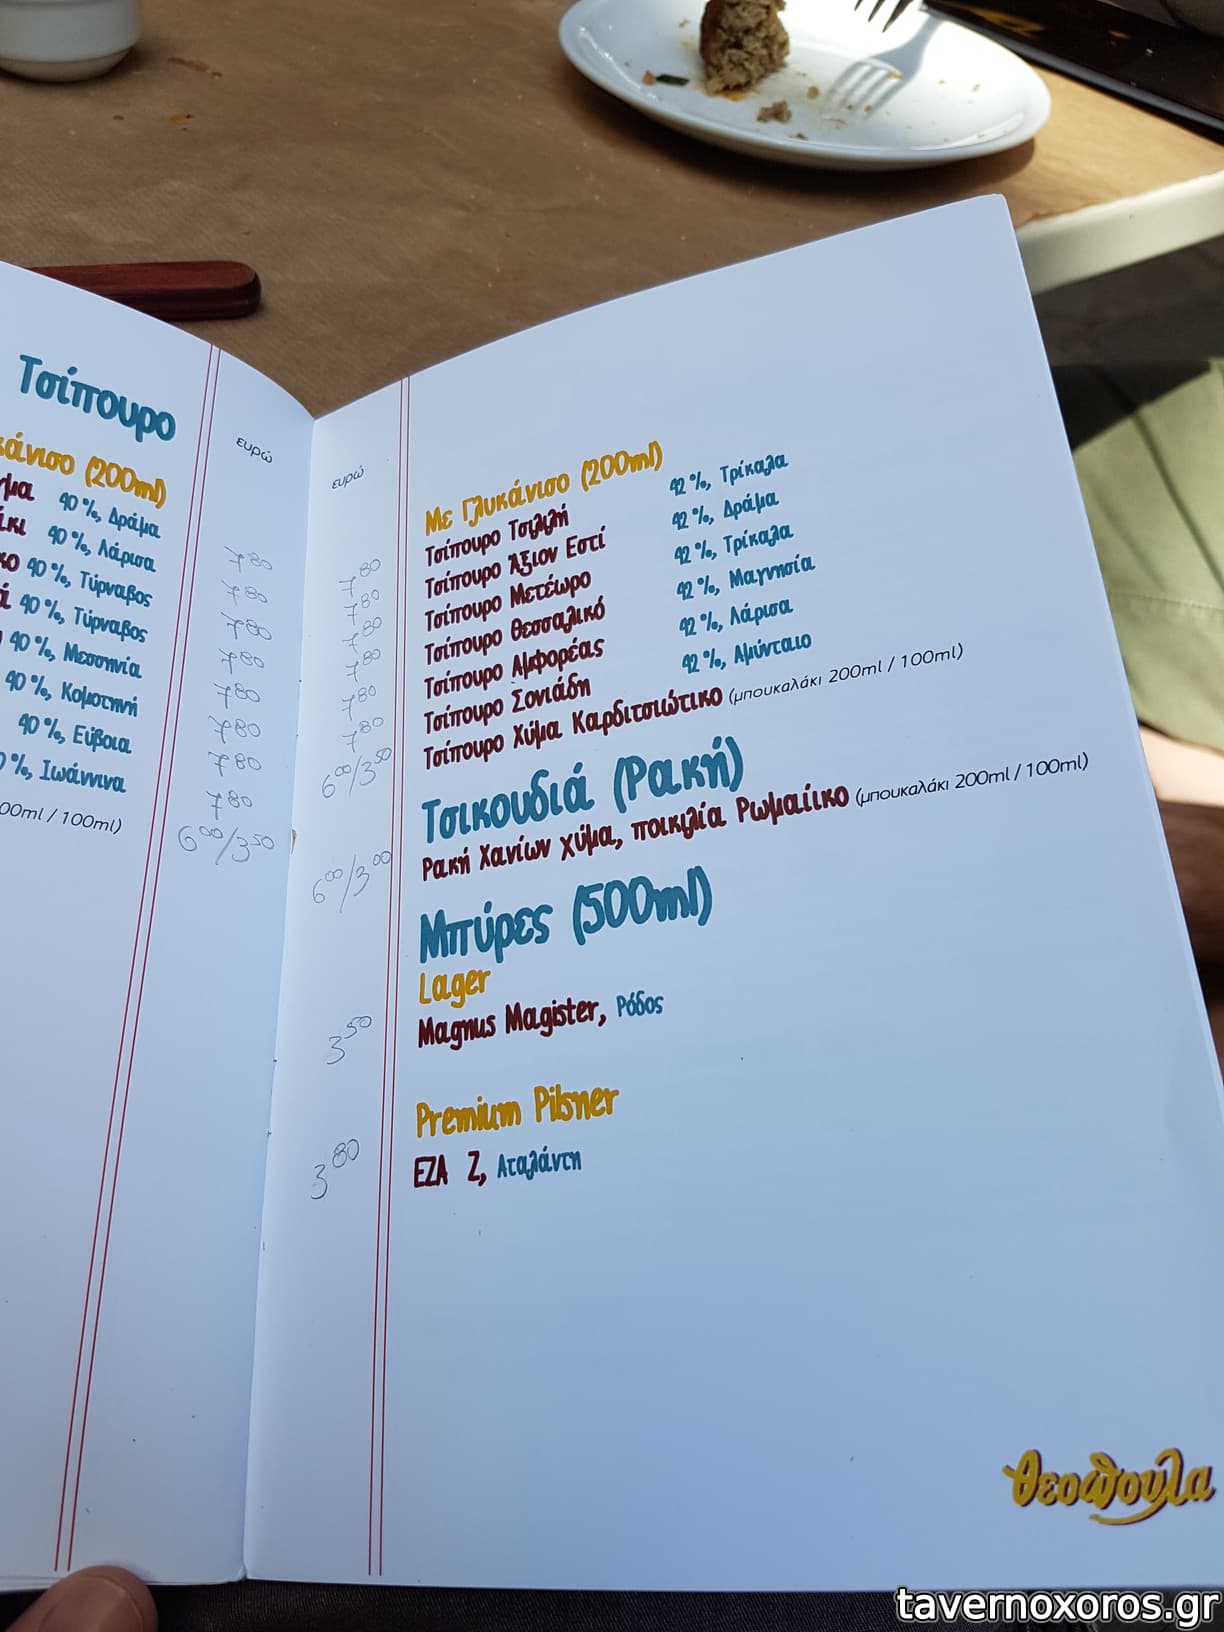 Τσίπουρο
ευρώ
(200ml)
40%, Δράμα
7 80
40%, Λάρισα
7 80
40%, Τύρναβος
7 80
40%, Τύρναβος
7 80
40%, Μεσσηνία
7 80
40%, Κομοτηνή
7 80
40%, Εύβοια
7 80
%, Ιωάννινα
7 80
/ 100ml)
6 00/3 50
ευρώ
Με Γλυκάνισο (200ml)
7 80 Τσίπουρο Τσιλιλή 42%, Τρίκαλα
7 80 Τσίπουρο Άξιον Εστί 42%, Δράμα
7 80 Τσίπουρο Μετέωρο 42%, Τρίκαλα
7 80 Τσίπουρο Θεσσαλικό 42%, Μαγνησία
7 80 Τσίπουρο Αμφορέας 42%, Λάρισα
7 80 Τσίπουρο Σονιάδη 42%, Αμύνταιο
6 00/3 50 Τσίπουρο Χύμα Καρδιτσιώτικο (μπουκαλάκι 200ml / 100ml)
Τσικουδιά (Ρακή)
6 00/3 00 Ρακή Χανίων χύμα, ποικιλία Ρωμαίικο (μπουκαλάκι 200ml / 100ml)
Μπύρες (500ml)
Lager
3 50 Magnus Magister, Ρόδος
Premium Pilsner
3 80 ΕΖΑ Ζ, Αταλάντη
Θεοπούλα
tavernoxoros.gr